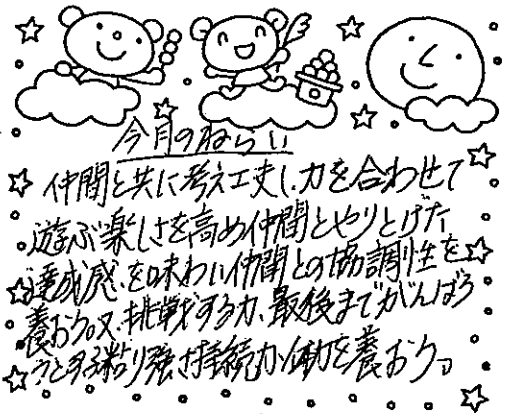 今月のねらい
仲間と共に考え工夫し、力を合わせて
遊ぶ楽しさを高め仲間とやりとげた
達成感を味わい仲間との協調性を
養おう。又、挑戦する力、最後までがんばろ
うとする粘り強さ持続力、体力を養おう。